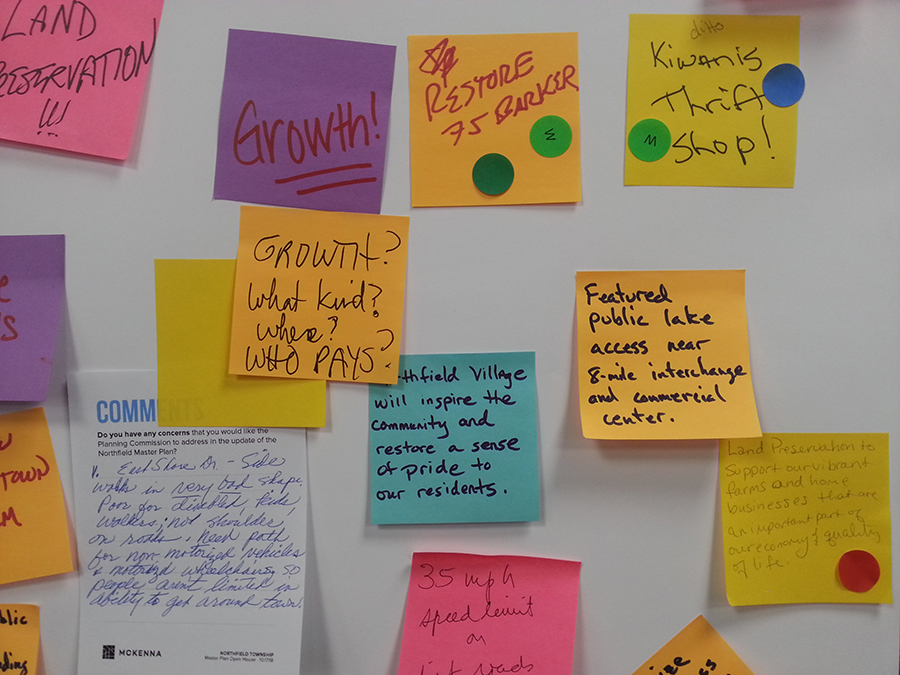 LAND
PRESERVATION
!!!
Growth!
RESTORE
75 BARKER
ditto
Kiwanis
Thrift
Shop!
GROWTH?
What kind?
where?
WHO PAYS?
Featured
public lake
access near
8-mile interchange
and commercial
center.
Northfield Village
will inspire the
community and
restore a sense
of pride to
our residents.
Land Preservation to
support our vibrant
farms and home
businesses that are
an important part of
our economy & quality
of life.
COMMENTS
Do you have any concerns that you would like the
Planning Commission to address in the update of the
Northfield Master Plan?
East Shore Dr. - Side
walks in very bad shape.
Poor for disabled, kids,
walkers; not shoulder
on roads. Need path
for non-motorized vehicles
& motorized wheelchairs, so
people aren't limited in
ability to get around town.
MCKENNA
NORTHFIELD TOWNSHIP
Master Plan Open House
35 mph
speed limit
on
roads
TOWN